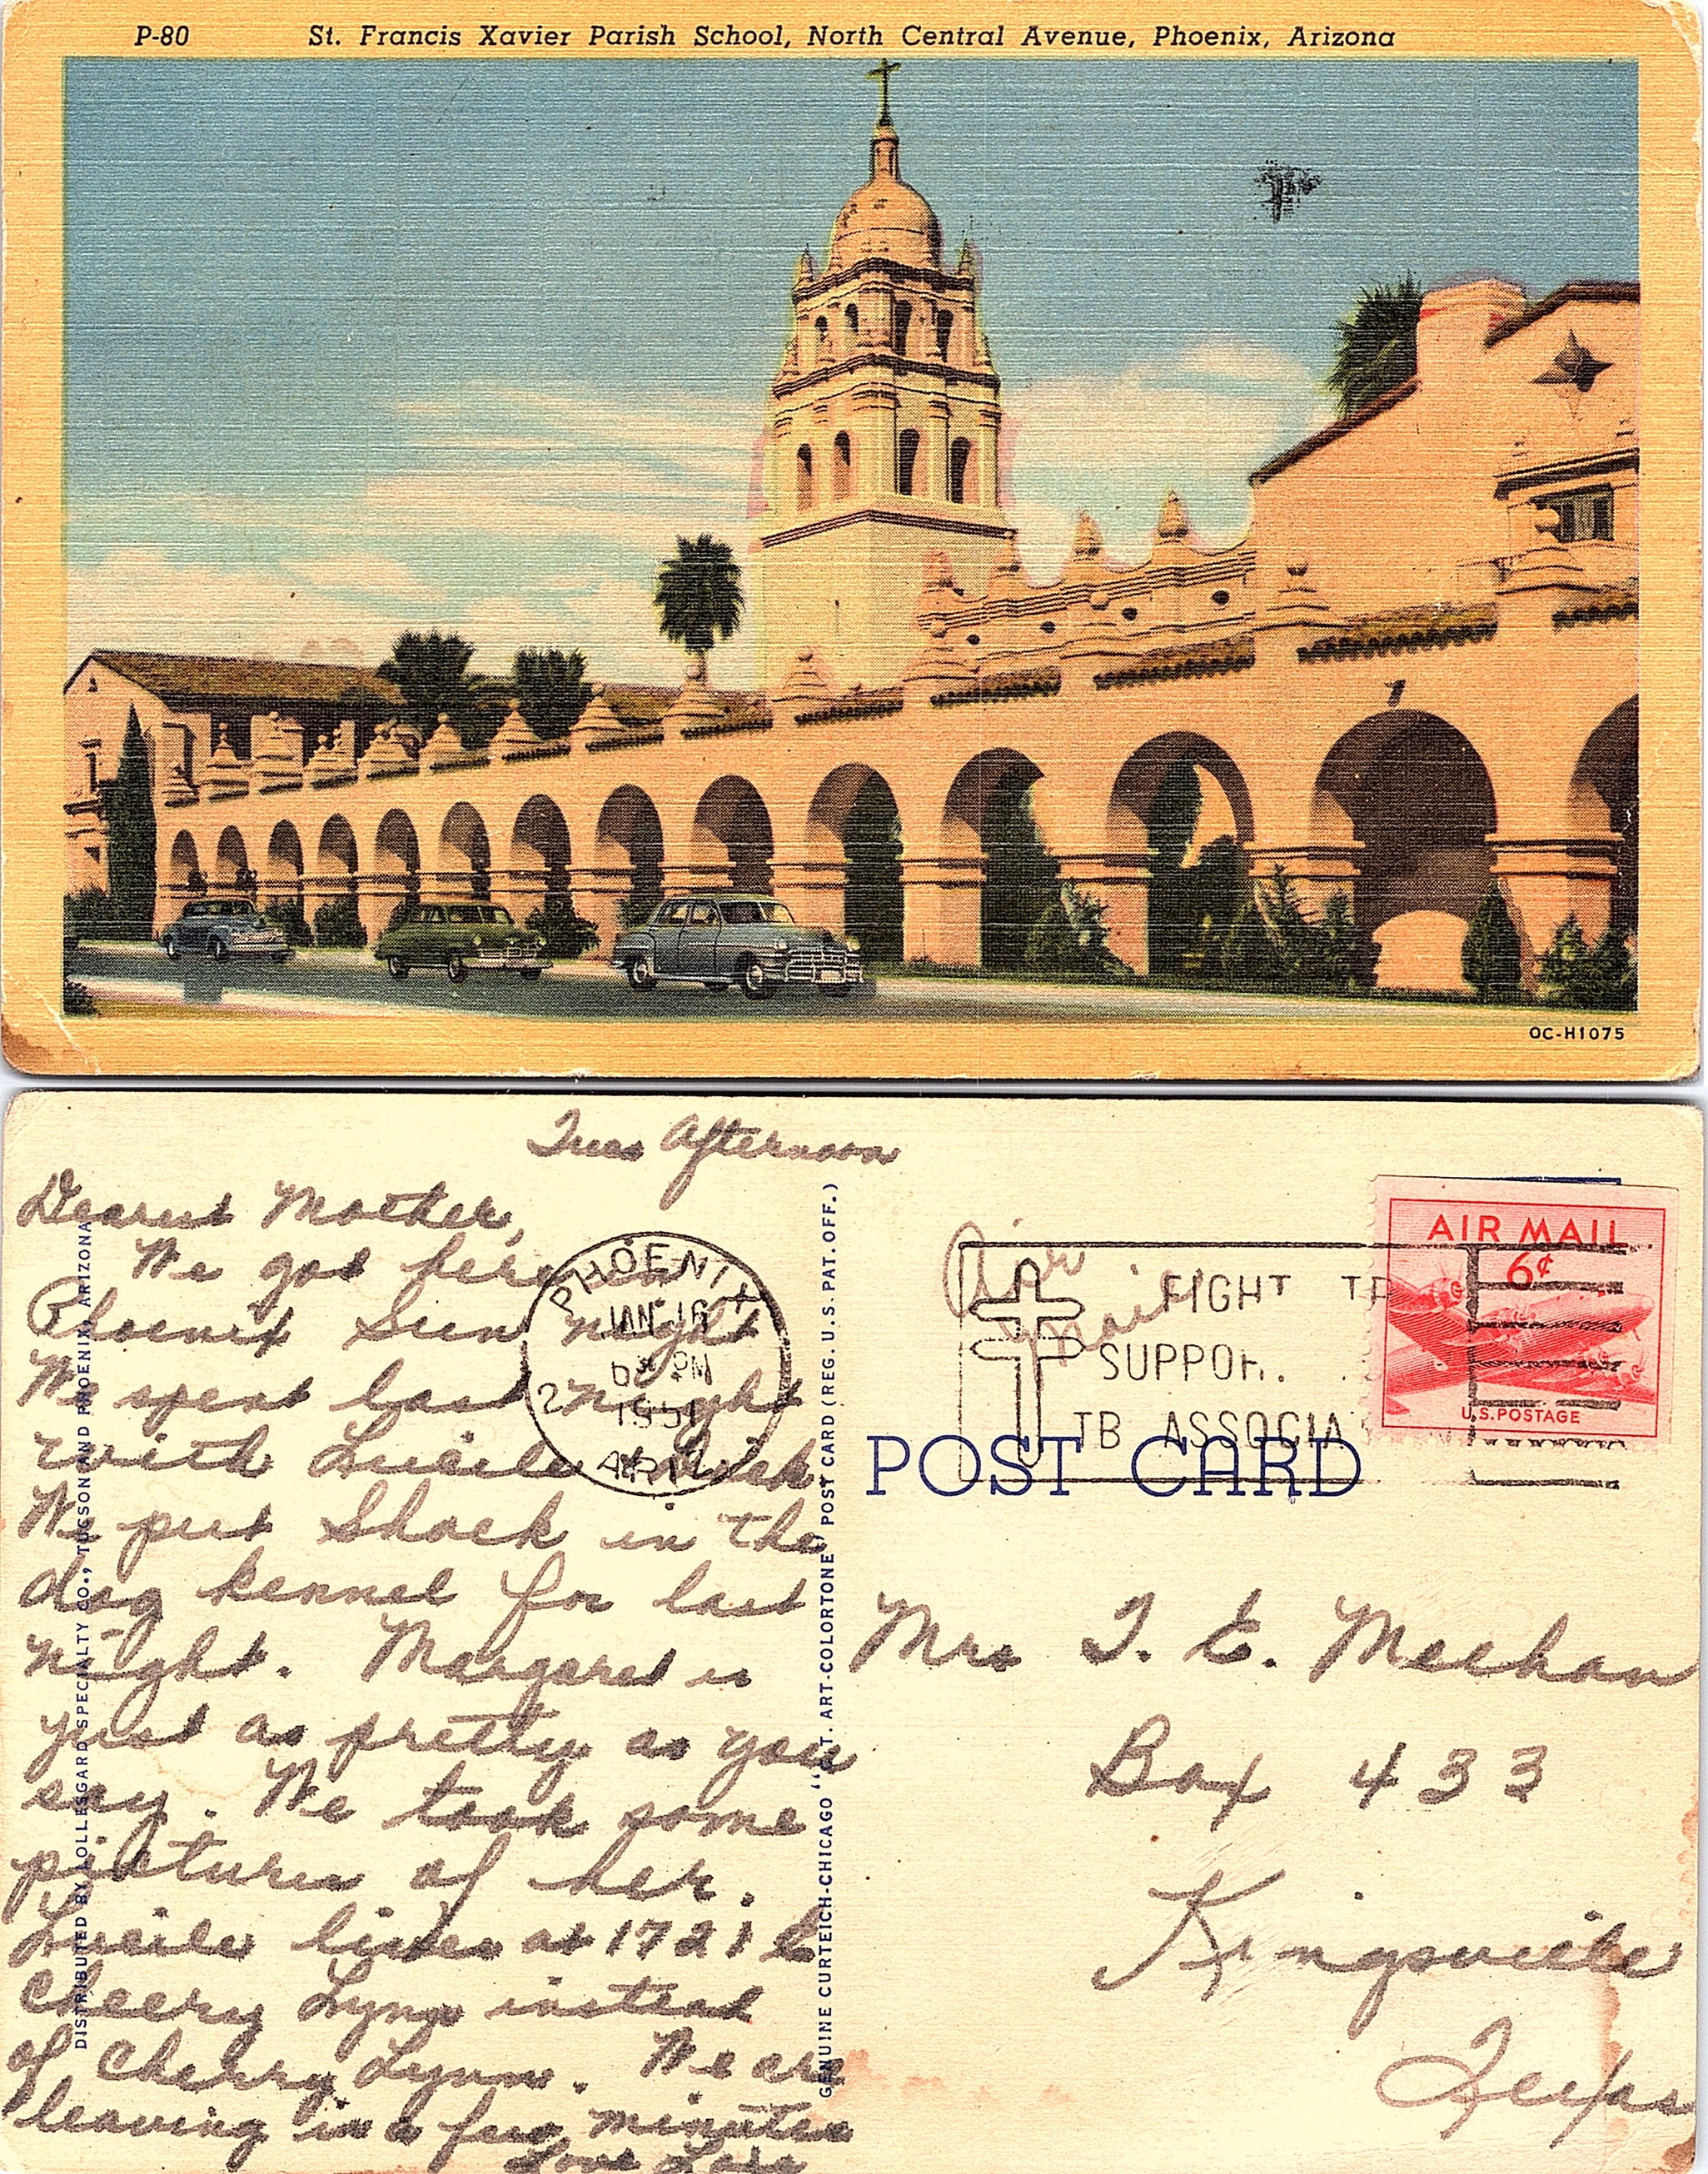 P-80 St. Francis Xavier Parish School, North Central Avenue, Phoenix, Arizona
OC-H1075
Tues Afternoon
Dearest Mother,
We got here in
Phoenix Sun night
We spent last night
with Lucile + Dick
We put Shack in the
dog kennel for last
night. Margaret is
just as pretty as you
say. We took some
pictures of her.
Lucile lives at 1721 E
Cheery Lynn instead
of Cherry Lynn. We are
leaving in a few minutes
Love
DISTRIBUTED BY LOLLESGARD SPECIALTY CO., TUCSON AND PHOENIX, ARIZONA
PHOENIX
JAN 16
6 30 PM
2
1951
ARIZ.
GENUINE CURTEICH-CHICAGO "C.T. ART-COLORTONE" POST CARD (REG. U.S. PAT. OFF.)
Air
mail
FIGHT TB
SUPPOR.
TB ASSOCIA
AIR MAIL
6¢
U.S. POSTAGE
POST CARD
Mrs T. E. Meehan
Box 433
Kingsville
Texas